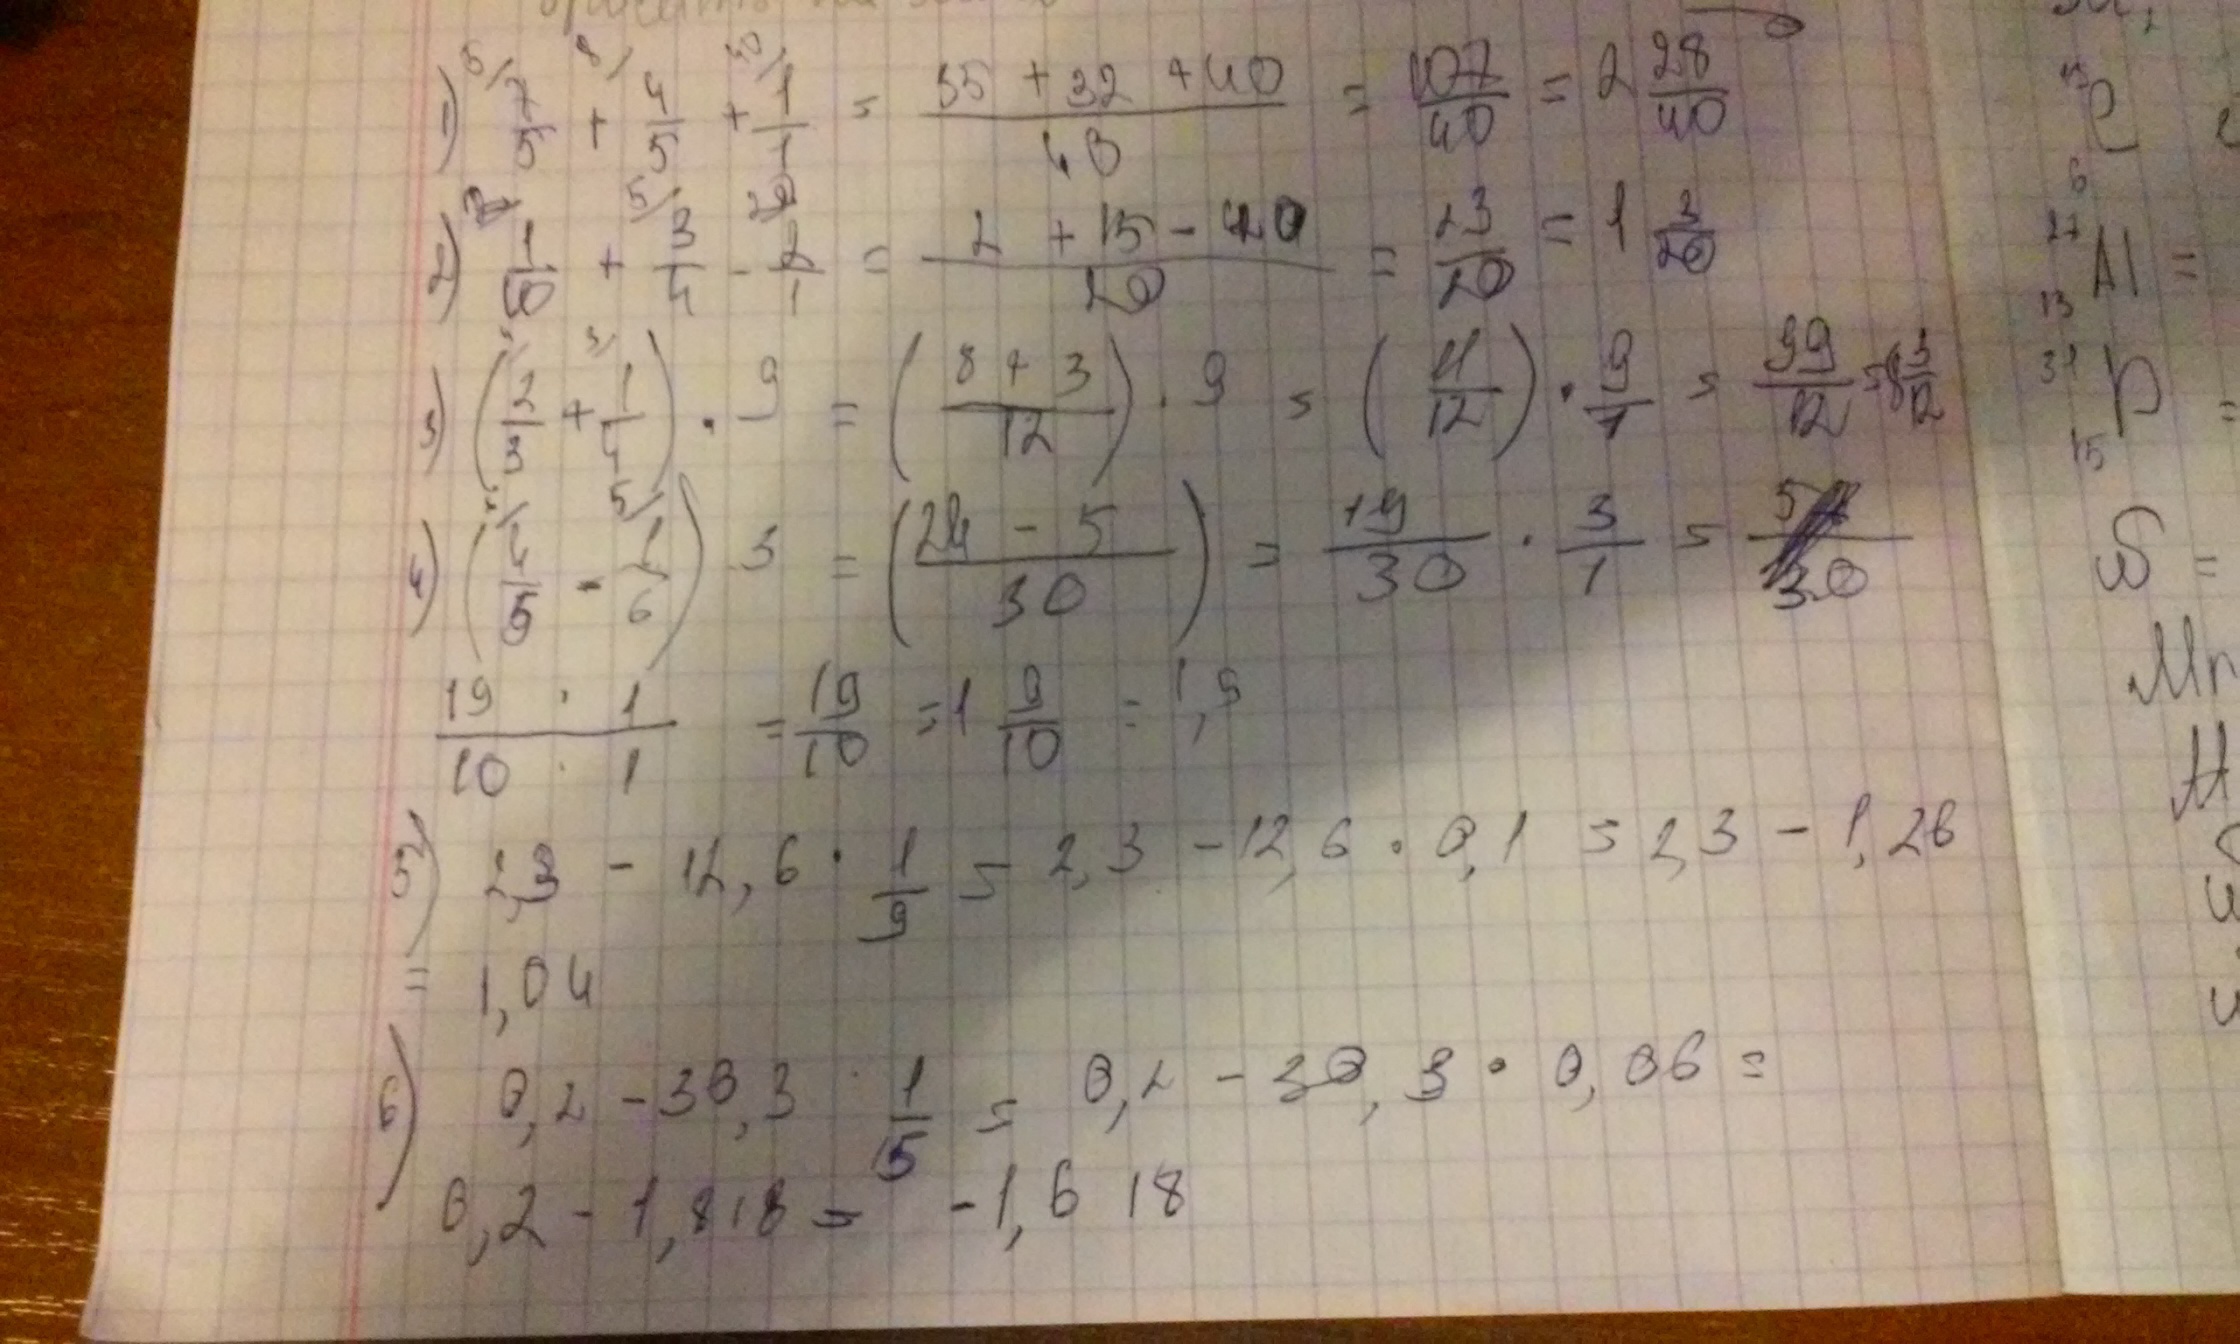 1) 5/ 7/5 + 8/ 4/5 + 40/ 1/1 = (35 + 32 + 40)/40 = 107/40 = 2 28/40
2) 1/10 + 5/ 3/4 - 20 2/1 = (2 + 15 - 40)/20 = 23/20 = 1 3/20
3) (2/3 + 3/ 1/4) · 9 = ((8 + 3)/12) · 9 = (11/12) · 9/1 = 99/12 = 8 3/12
4) (4/5 - 5/ 1/6) 3 = ((24 - 5)/30) = 19/30 · 3/1 = 57/30
(19 · 1)/(10 · 1) = 19/10 = 1 9/10 = 1,9
5) 2,3 - 12,6 · 1/9 = 2,3 - 12,6 · 0,1 = 2,3 - 1,26
= 1,04
6) 0,2 - 30,3 · 1/15 = 0,2 - 30,3 · 0,06 =
0,2 - 1,818 = -1,618
27
13 Al =
31
15 P =
S =
Mn
H